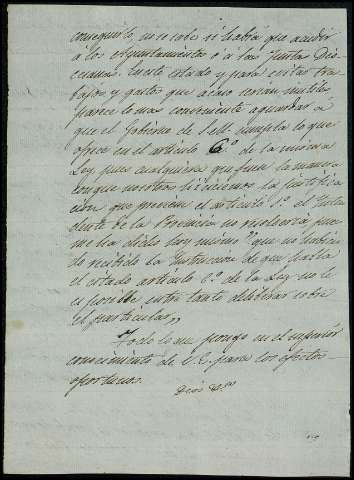 conseguirlo no se sabe si habrá que acudir
á los Ayuntamientos ó á las Juntas Dio-
cesanas. En este estado y para evitar tra-
bajos y gastos que acaso serian inutiles,
parece lo mas conveniente aguardar a
que el Gobierno de S.M. cumpla lo que
ofrece en el artículo 6.º de la misma
Ley, pues cualquiera que fuese la manera
con que nosotros hiciesemos la justifica-
cion que previene el artículo 1.º el Inten
dente de la Provincia no resolveria pues
me ha dicho hoy mismo "que no habien-
do recibido la Instruccion de que habla
el citado artículo 6.º de la Ley no le
es posible entre tanto deliberar sobre
el particular,,
Todo lo que pongo en el superior
conocimiento de V.E. para los efectos
oportunos.
Dios &.ª